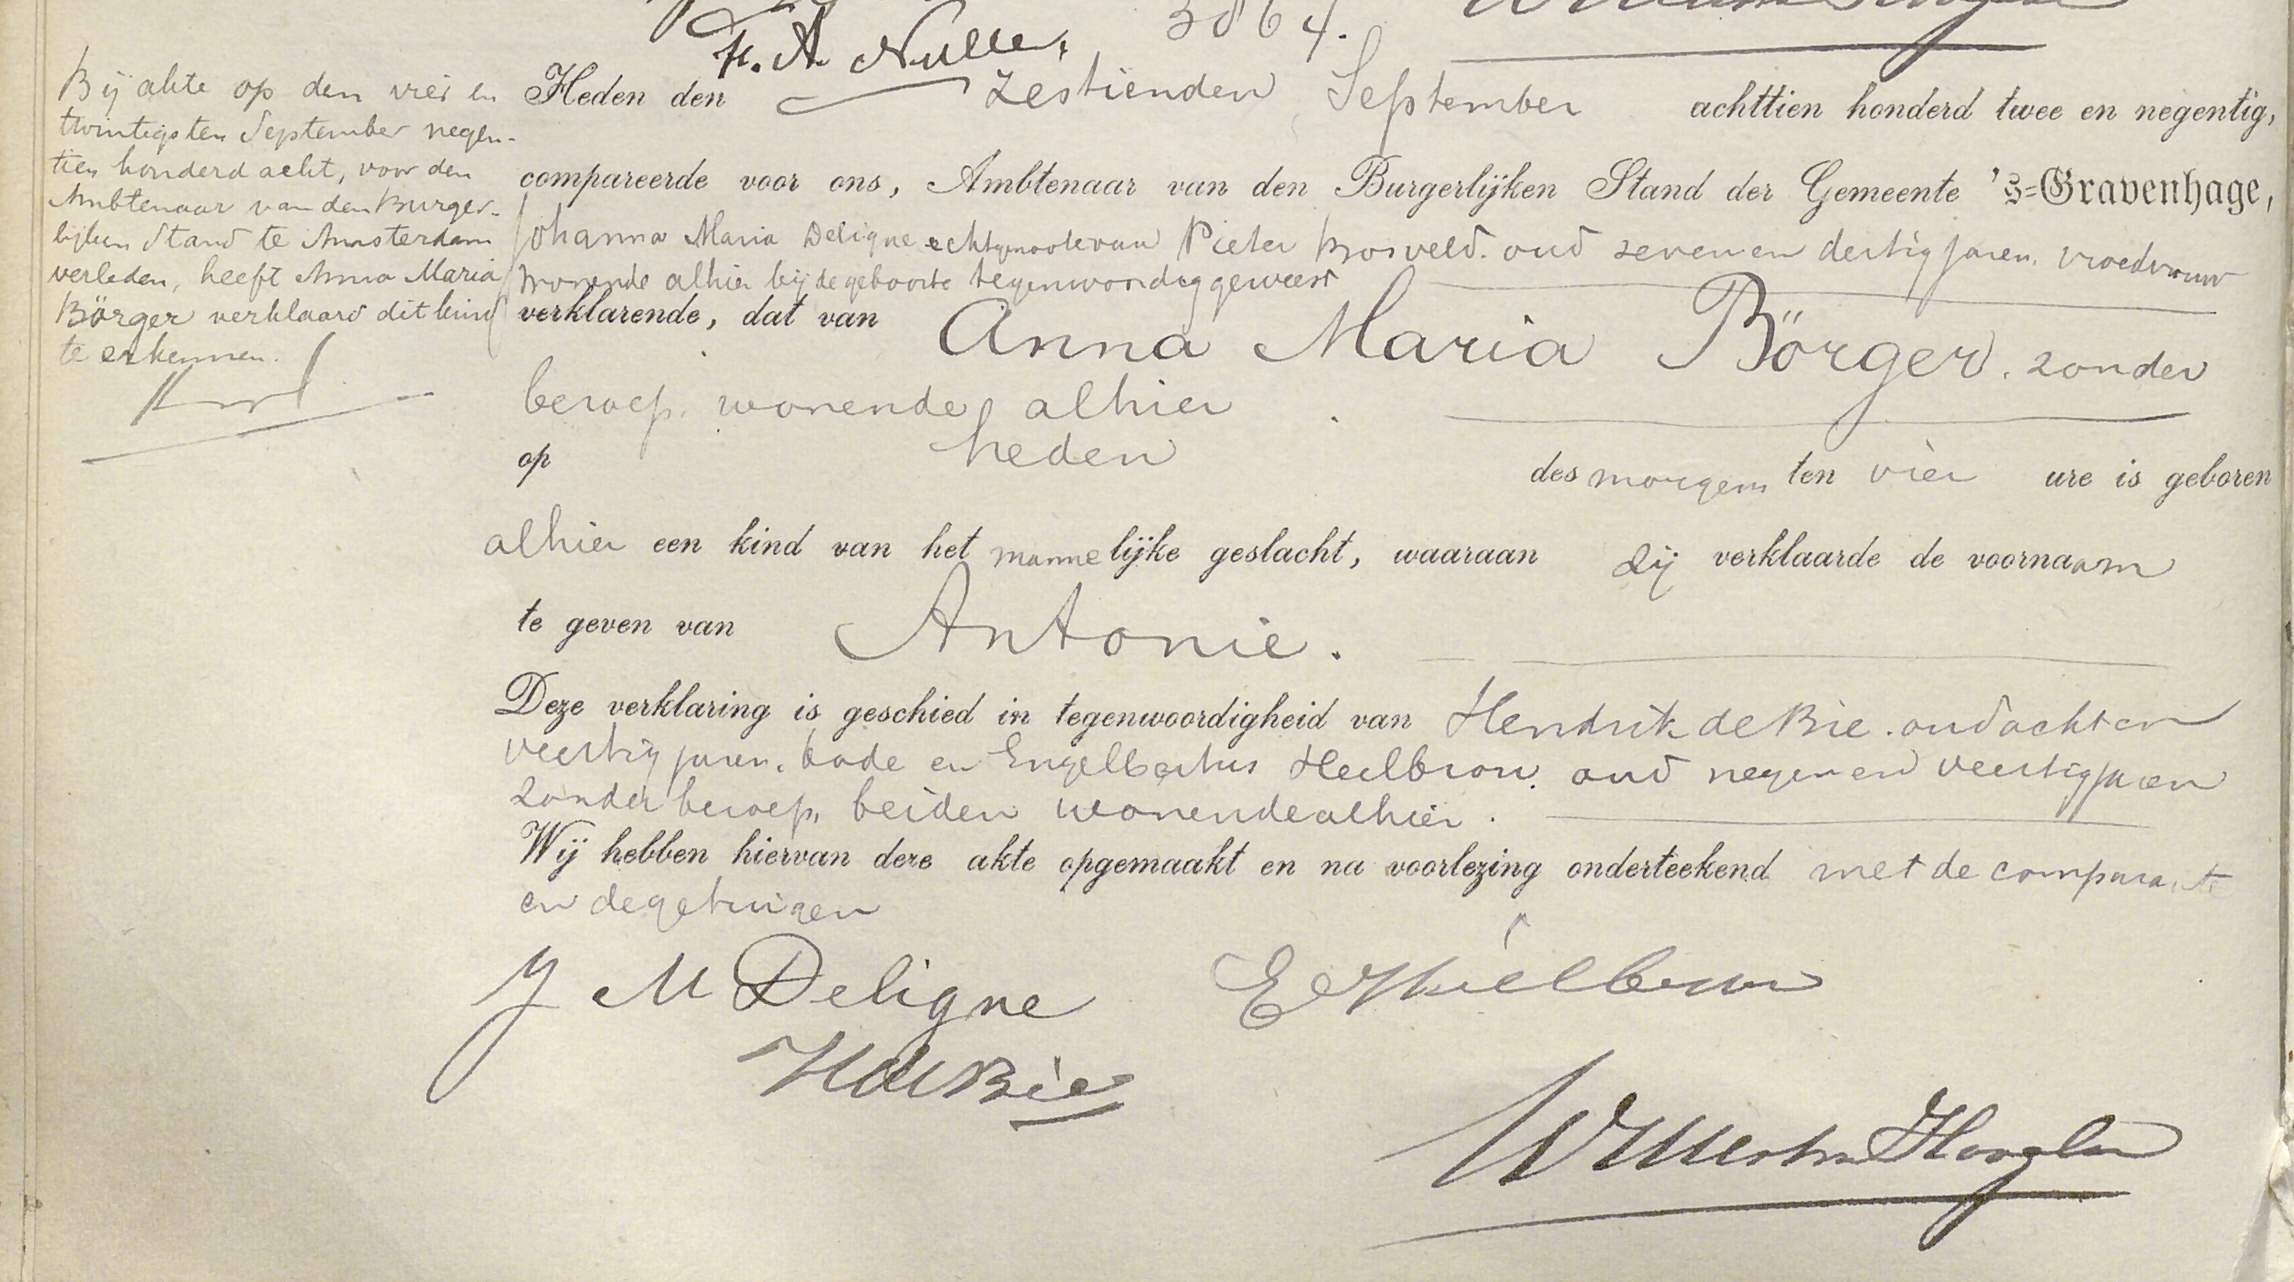 H. A. Nulle.
3864.
Bij akte op den vier en
twintigsten September negen-
tien honderd acht, voor den
Ambtenaar van den Burger-
lijken Stand te Amsterdam
verleden, heeft Anna Maria
Börger verklaard dit kind
te erkennen.
Heden den zestienden September achttien honderd twee en negentig,
compareerde voor ons, Ambtenaar van den Burgerlijken Stand der Gemeente 's=Gravenhage,
Johanna Maria Deligne echtgenoote van Pieter Bosveld. oud zeven en dertig jaren. vroedvrouw
wonende alhier bij de geboorte tegenwoordig geweest
verklarende, dat van Anna Maria Börger. zonder
beroep. wonende alhier
op heden des morgens ten vier ure is geboren
alhier een kind van het mannelijke geslacht, waaraan zij verklaarde de voornaam
te geven van Antonie.
Deze verklaring is geschied in tegenwoordigheid van Hendrik de Bie. oud acht en
veertig jaren. bode en Engelbertus Heilbron. oud negen en veertig jaren
zonder beroep, beiden wonende alhier.
Wij hebben hiervan deze akte opgemaakt en na voorlezing onderteekend met de comparante
en de getuigen
J M Deligne
HdeBie